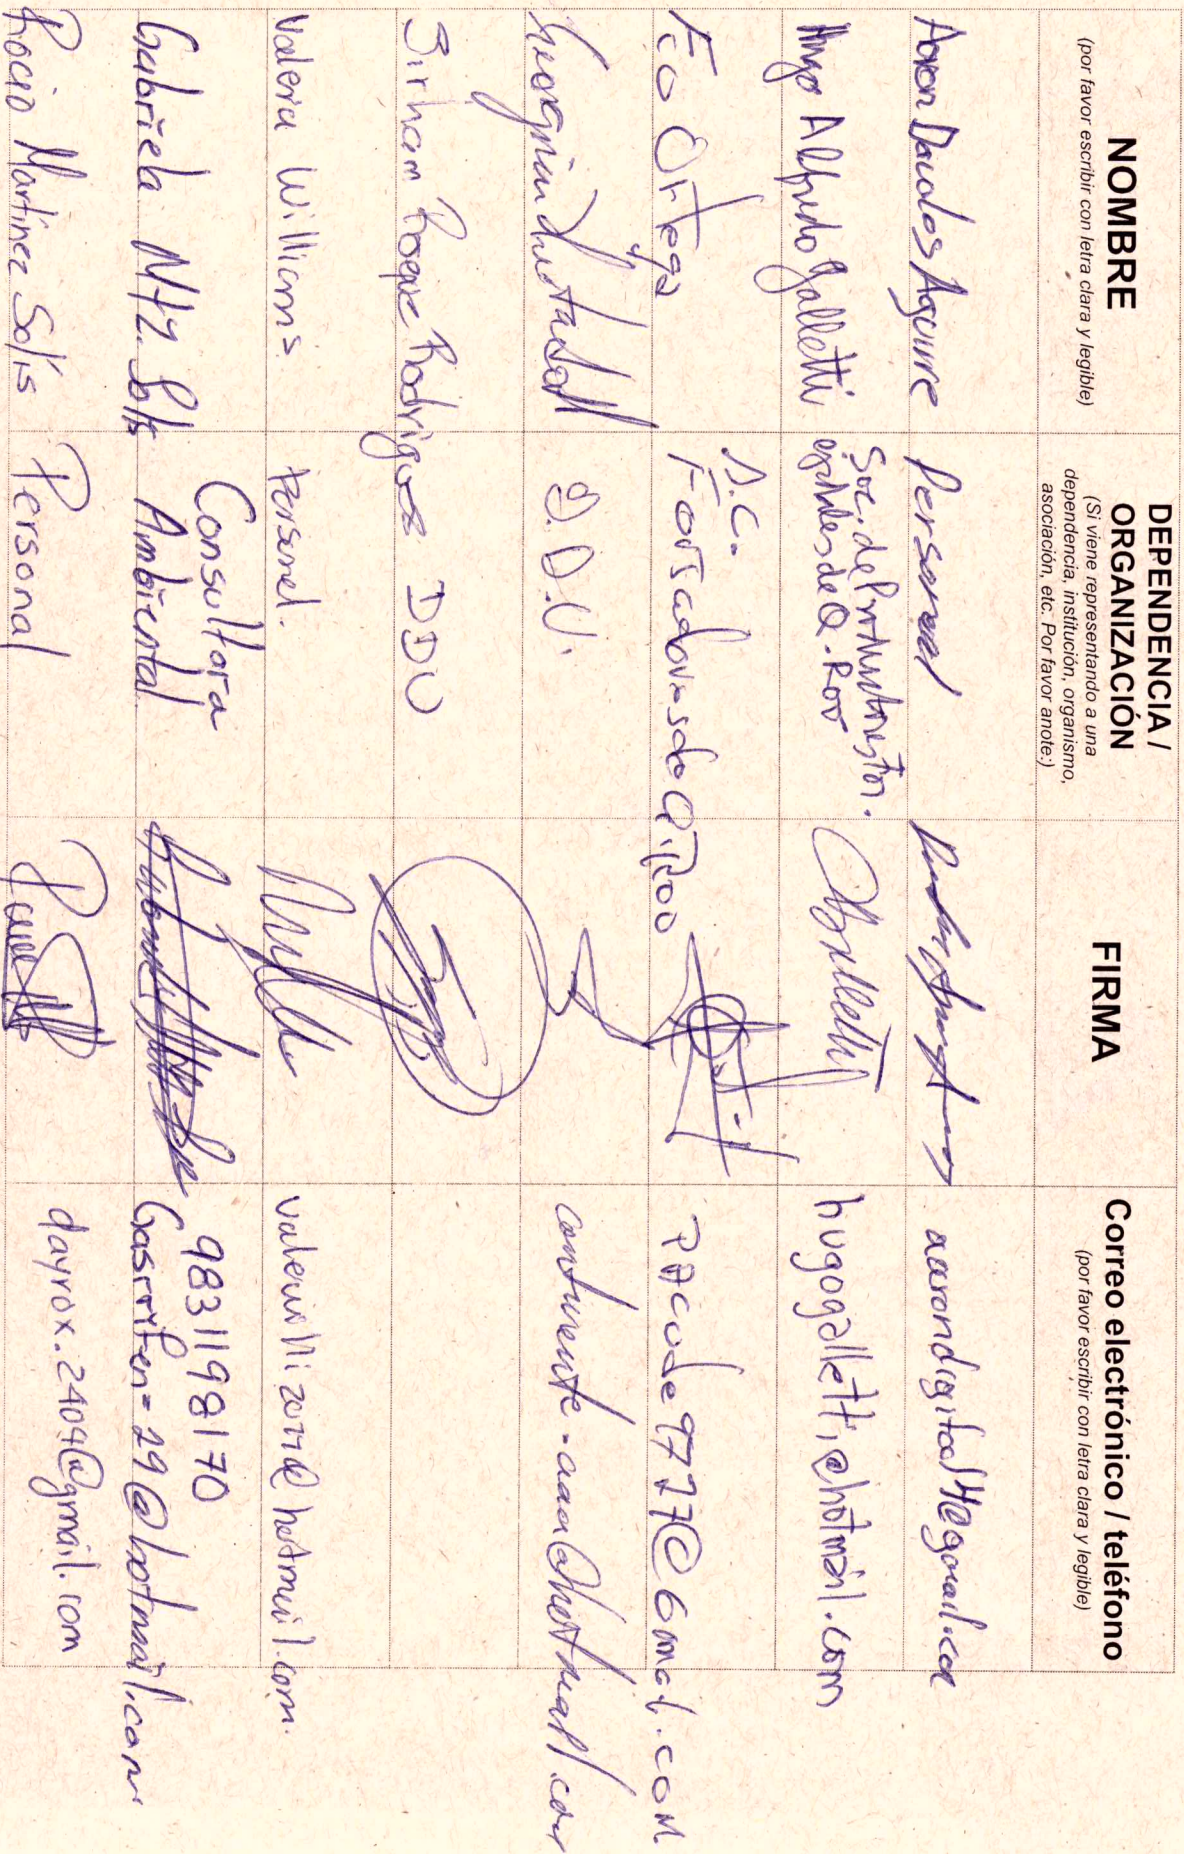 NOMBRE
(por favor escribir con letra clara y legible)
DEPENDENCIA /
ORGANIZACIÓN
(Si viene representando a una
dependencia, institución, organismo,
asociación, etc. Por favor anote:)
FIRMA
Correo electrónico / teléfono
(por favor escribir con letra clara y legible)
Aaron Davalos Aguirre
Personal
aarondigital4@gmail.com
Hugo Alfredo Galletti
Soc. de Prod.
de Q. Roo
hugogalletti@hotmail.com
Fco Ortega
A.C.
de Q. Roo
D.D.U.
Sirham Rodriguez
DDU
Valeria Williams
Personal.
@hotmail.com.
Gabriela Mtz. Solis
Consultora
Ambiental
9831198170
29@hotmail.com
Rocio Martínez Solís
Personal
dayrox.2409@gmail.com